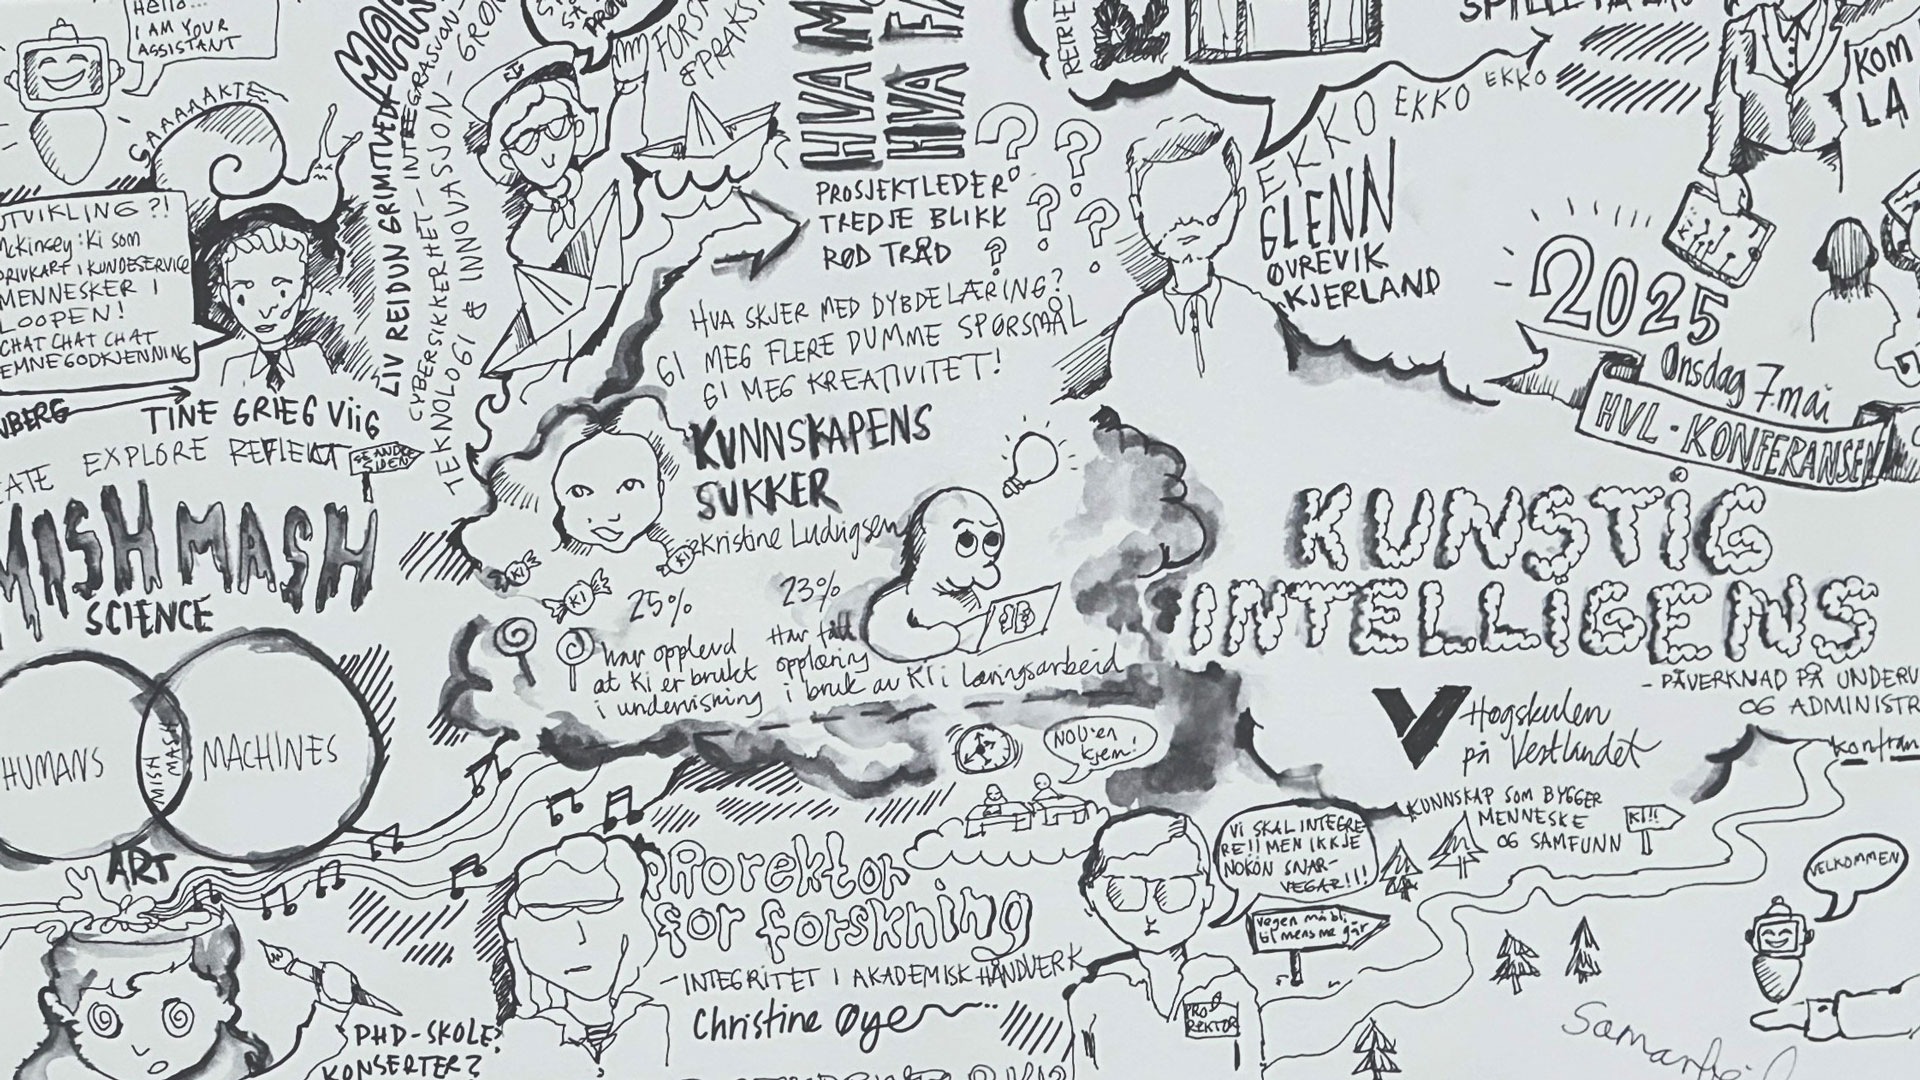 Hello...
I AM YOUR
ASSISTANT
SAAAAAKTE
UTVIKLING?!
McKinsey: KI som
DRIVKART I KUNDESERVICE
MENNESKER I
LOOPEN!
CHAT CHAT CHAT
EMNEGODKJENNING
NBERG
TINE GRIEG VIIG
EXPLORE REFLEKT
SE ANDRE SIDEN
MISH MASH
SCIENCE
HUMANS
MISH MASH
MACHINES
ART
PHD-SKOLE?
KONSERTER?
LIV REIDUN GRIMTVEDT
CYBERSIKKERHET
TEKNOLOGI & INNOVASJON
& PRAKSIS
HVA
HVA
PROSJEKTLEDER
TREDJE BLIKK
RØD TRÅD
HVA SKJER MED DYBDELÆRING?
GI MEG FLERE DUMME SPØRSMÅL
GI MEG KREATIVITET!
KUNNSKAPENS
SUKKER
Kristine Ludvigsen
KI
KI
KI
25%
har opplevd
at KI er brukt
i undervisning
23%
Har fått
opplæring
i bruk av KI i læringsarbeid
EKKO EKKO EKKO
GLENN
ØVREVIK
KJERLAND
KOM
LA
2025
Onsdag 7. mai
HVL-KONFERANSEN
KUNSTIG
INTELLIGENS
- PÅVERKNAD PÅ UNDERV
OG ADMINISTR
Høgskulen
på Vestlandet
KUNNSKAP SOM BYGGER
MENNESKE
OG SAMFUNN
KI!!
NOU'en
kjem!
Prorektor
for forskning
- INTEGRITET I AKADEMISK HÅNDVERK
Christine Øye
VI SKAL INTEGRE
RE!! MEN IKKJE
NOKON SNAR-
VEGAR!!!
Vegen må bli
til mens me går
PRO
REKTOR
VELKOMMEN